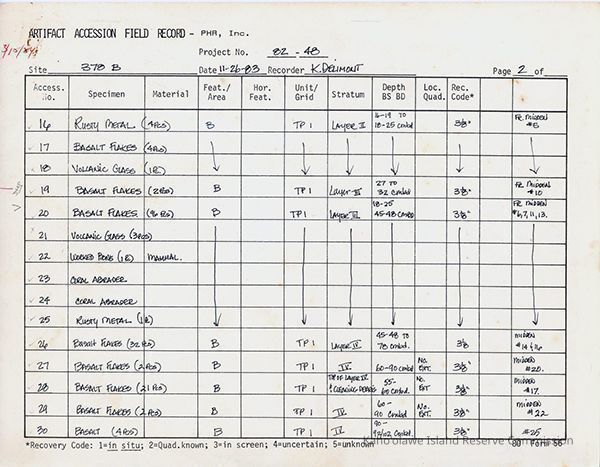 ARTIFACT ACCESSION FIELD RECORD - PHR, Inc.
Project No. 82-48
Site 378 B Date 11-26-83 Recorder K. DELIMONT Page 2 of
Access. No. Specimen Material Feat./Area Hor. Feat. Unit/Grid Stratum Depth BS BD Loc. Quad. Rec. Code*
16 RUSTY METAL (4PCS) B TP 1 LAYER II 16-19 TO 18-25 cmbd 3⅛" FR. MIDDEN #5
17 BASALT FLAKES (4PCS)
18 VOLCANIC GLASS (1PC)
19 BASALT FLAKES (2PCS) B TP 1 Layer III 27 TO 32 cmbd 3⅛" FR MIDDEN #10
20 BASALT FLAKES (96 PCS) B TP 1 LAYER III 18-25 45-48 cmbd 3⅛" FR MIDDEN #6,7,11,13.
21 VOLCANIC GLASS (3PCS)
22 WORKED BONE (1PC) MAMMAL.
23 CORAL ABRADER
24 CORAL ABRADER
25 RUSTY METAL (1PC)
26 BASALT FLAKES (32 PCS) B TP 1 LAYER IV 45-48 TO 78 cmbd. 3⅛ MIDDEN #14 & 16
27 BASALT FLAKES (2 PCS) B TP 1 IV 60-90 cmbd No. EXT. 3⅛" MIDDEN #20.
28 BASALT FLAKES (21 PCS) B TP 1 TOP OF LAYER IV & CLEANING DEBRIS 55-60 cmbd. No. EXT. 3⅛" MIDDEN #17.
29 BASALT FLAKES (2 PCS) B TP 1 IV 60-90 cmbd No. EXT. 3⅛" MIDDEN #22
30 BASALT (4 PCS) B TP 1 IV 90-92/02 cmbd. 3⅛" #25
*Recovery Code: 1=in situ; 2=Quad.known; 3=in screen; 4=uncertain; 5=unknown
Kaho'olawe Island Reserve Commission
80 Form 56